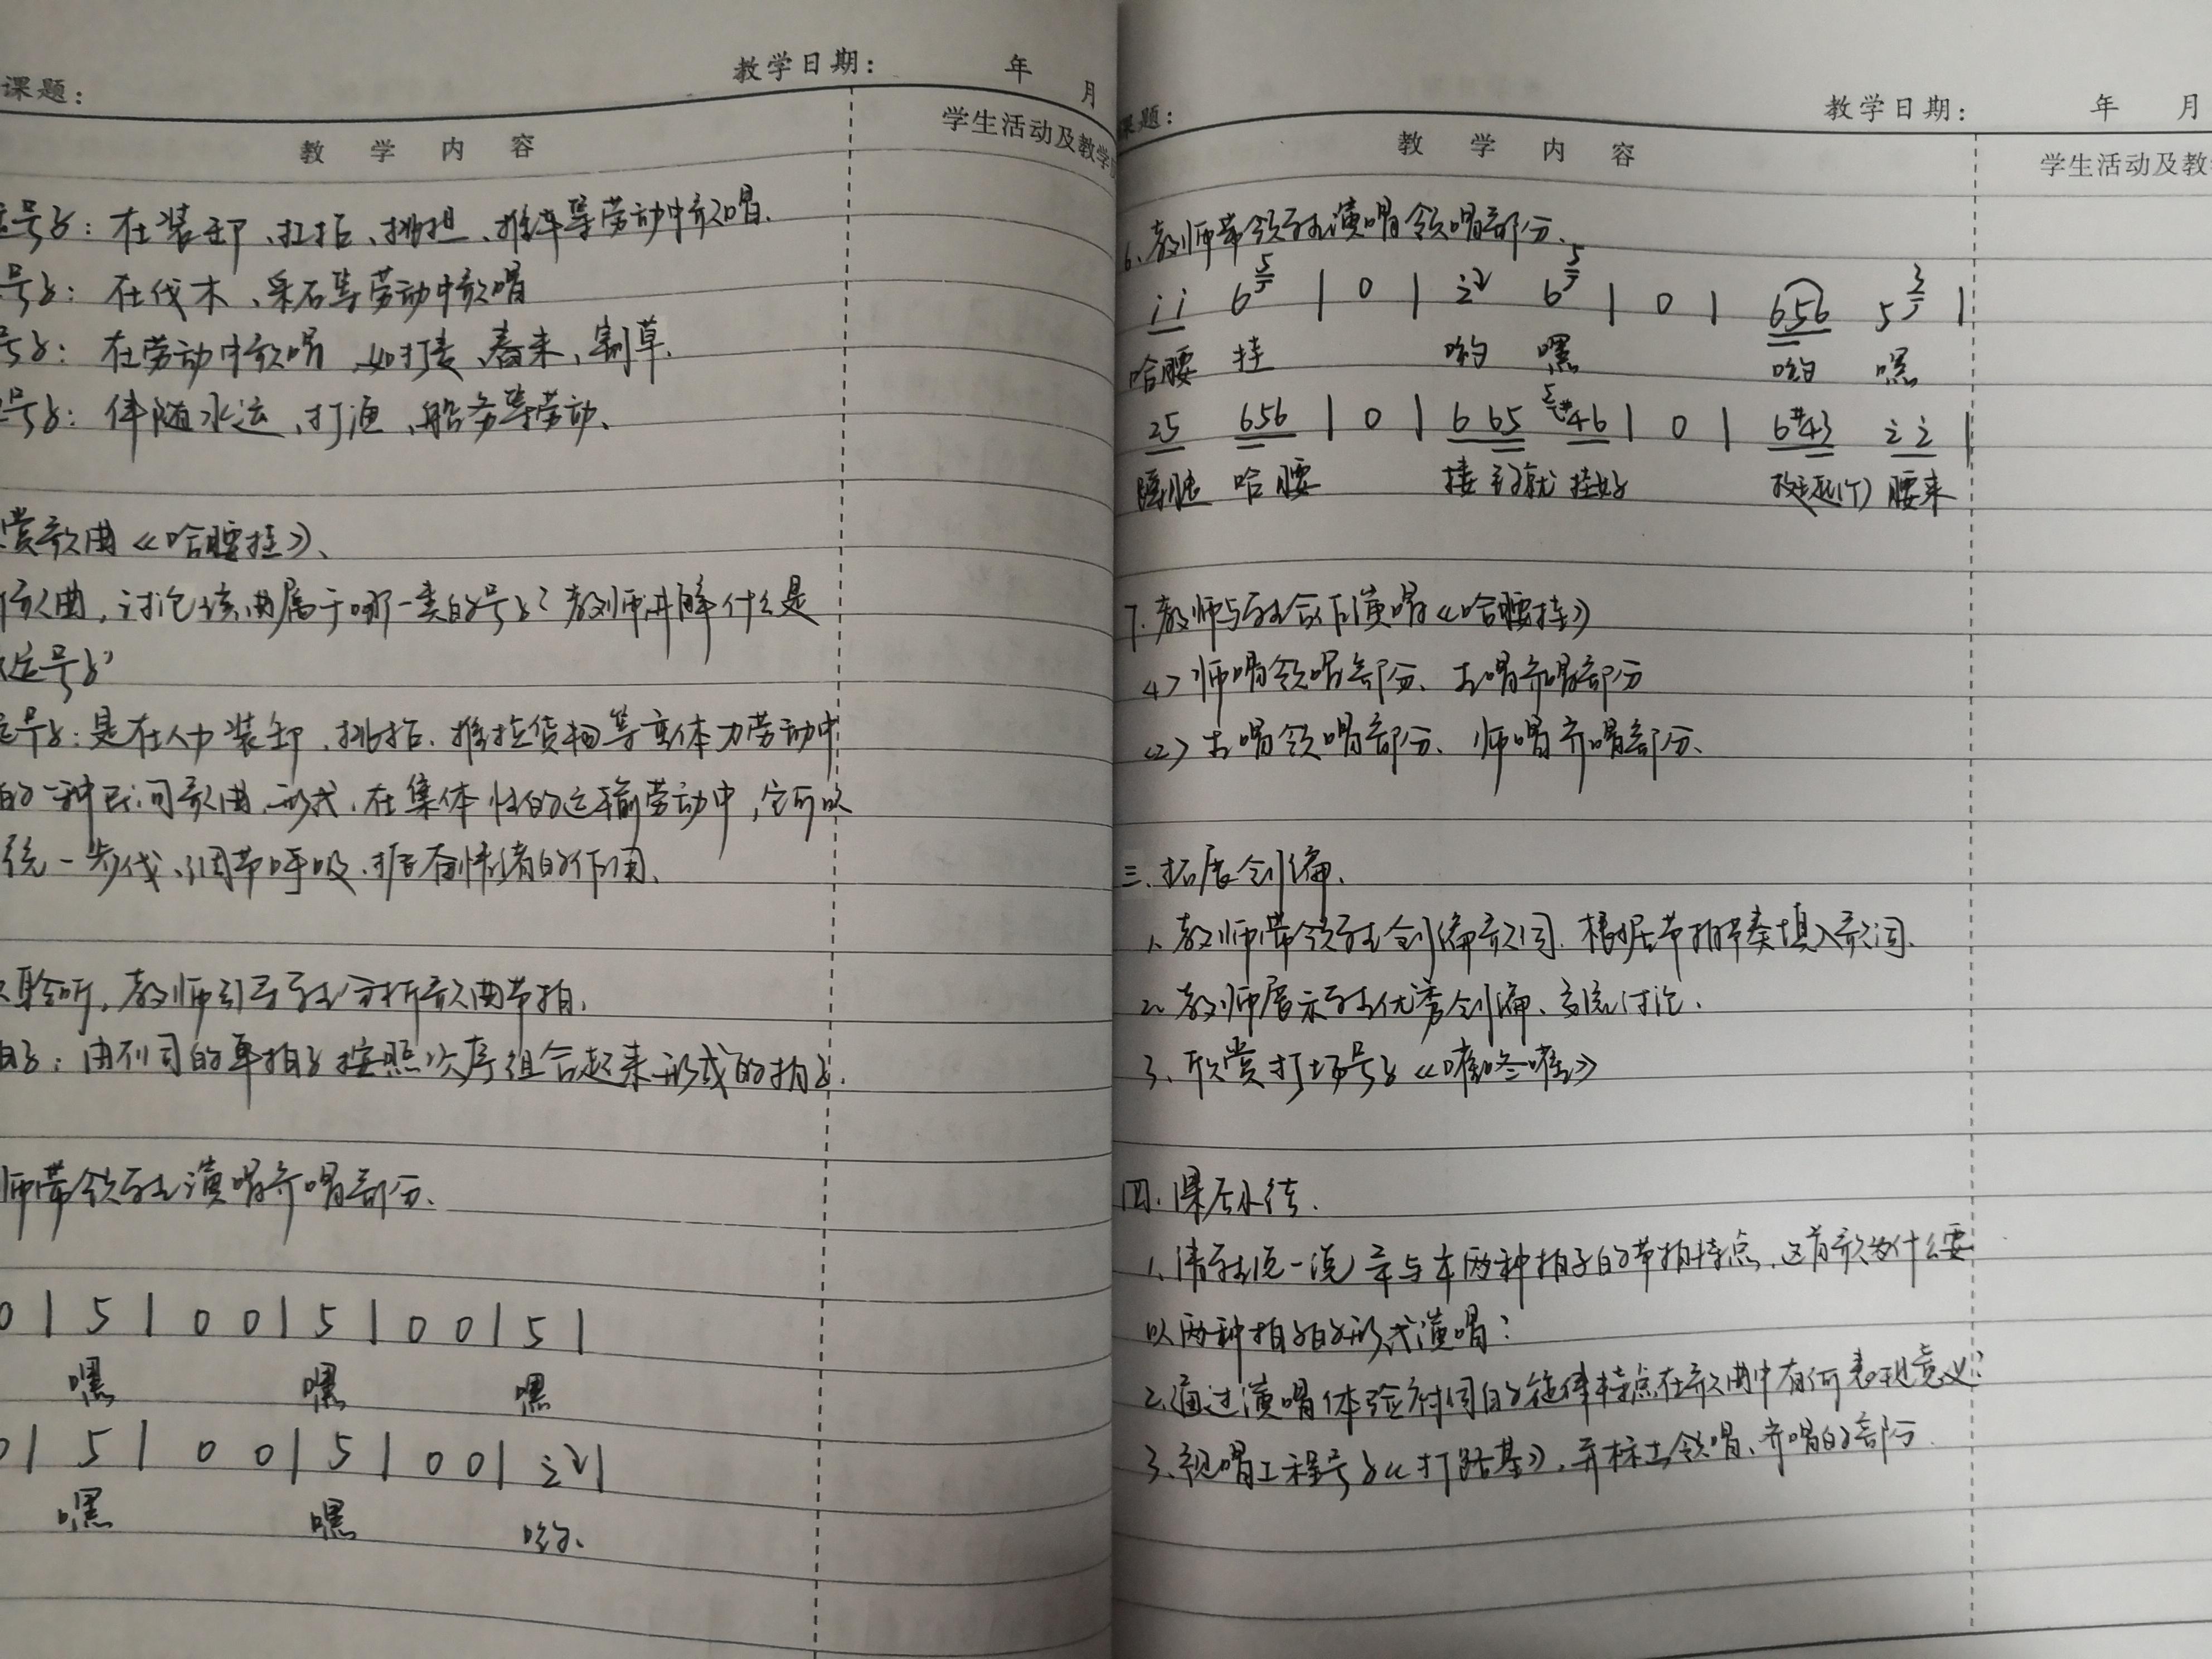 课题：
教学日期： 年 月
教 学 内 容
学生活动及教学
运号子：在装卸、扛抬、挑担、推车等劳动中歌唱.
号子：在伐木、采石等劳动中歌唱
号子：在劳动中歌唱,如打麦、舂米、割草.
号子：伴随水运、打渔、船务等劳动、
赏歌曲《哈腰挂》、
歌曲,讨论该曲属于哪一类的号子？教师讲解什么是
运号子
运号子：是在人力装卸、挑抬、推拉货物等重体力劳动中
的一种民间歌曲形式.在集体性的运输劳动中,它可以
统一步伐、调节呼吸、振奋情绪的作用、
聆听,教师引导学生分析歌曲节拍.
拍子：由不同的单拍子按照次序组合起来形成的拍子.
师带领学生演唱齐唱部分.
0 | 5 | 0 0 | 5 | 0 0 | 5 |
嘿 嘿 嘿
0 | 5 | 0 0 | 5 | 0 0 | 2̇ |
嘿 嘿 哟.
课题：
教学日期： 年 月
教 学 内 容
学生活动及教
6、教师带领学生演唱领唱部分、
i̇ i̇ 6 5 | 0 | 2̇ 6 5 | 0 | 656 5 3 |
哈腰 挂 哟 嘿 哟 嘿
25 656 | 0 | 6 65 5 #46 | 0 | 6#43 2̇ 2̇ |
蹲腿 哈 腰 挂好 腰来
7.教师与学生合作演唱《哈腰挂》
<1>师唱领唱部分、生唱齐唱部分
<2>生唱领唱部分、师唱齐唱部分、
三、拓展创编、
1、教师带领学生创编歌词.根据节拍节奏填入歌词.
2、教师展示学生优秀创编、交流讨论.
3、欣赏打场号子《嘡咚嘡》
四.课后小结.
1、请学生说一说 与 两种拍子的节拍特点,这首歌为什么要
以两种拍子的形式演唱？
2.通过演唱体验衬词的旋律特点在歌曲中有何表现意义？
3、视唱工程号子《打路基》,并标出领唱、齐唱的部分.